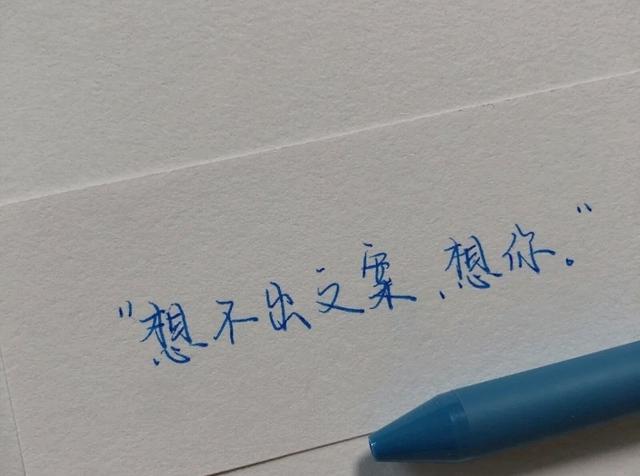 "想不出文案,想你。"